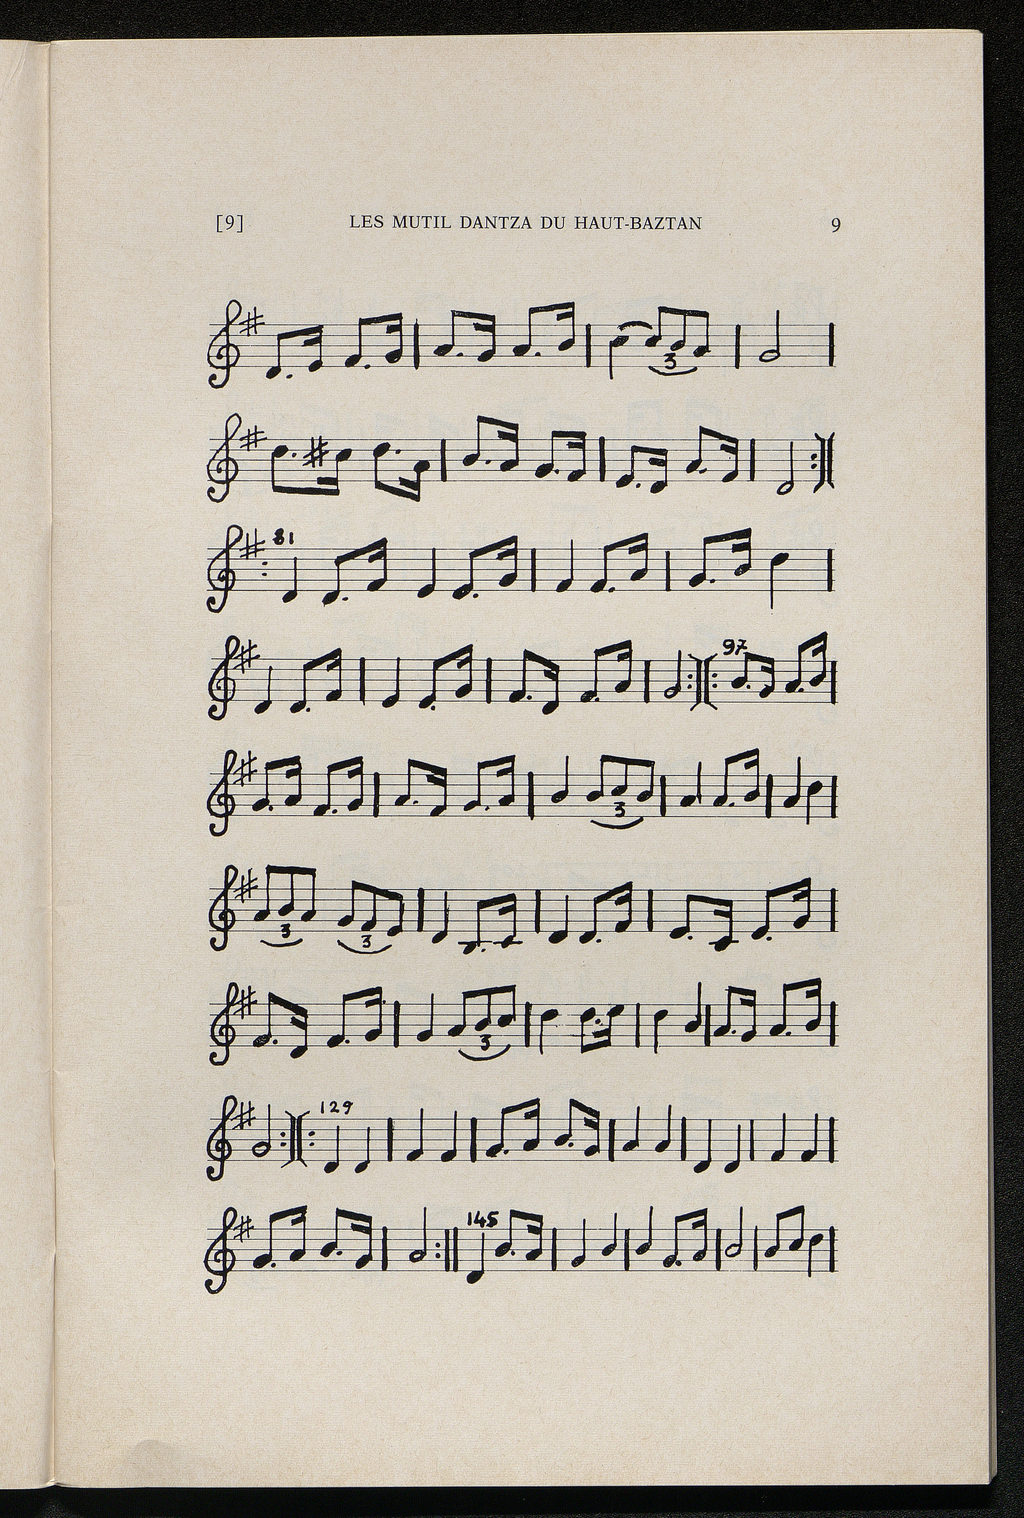 [9] LES MUTIL DANTZA DU HAUT-BAZTAN 9
3
81
97
3
3 3
3
129
145